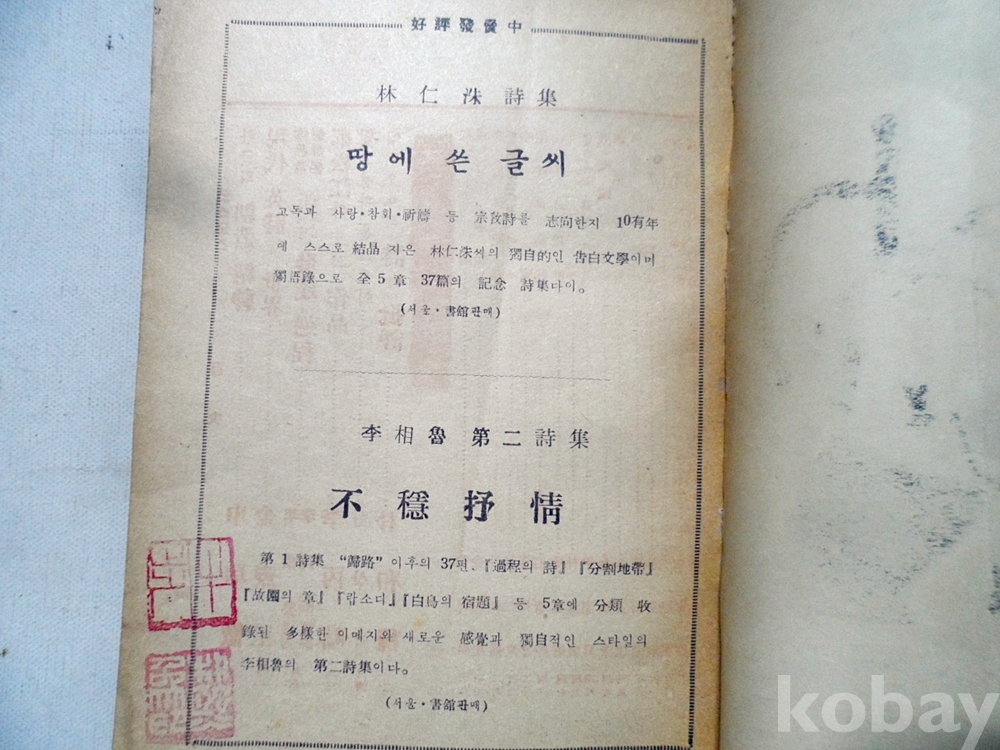 好評發賣中
林仁洙詩集
땅에 쓴 글씨
고독과 사랑·참회·祈禱 등 宗敎詩를 志向한지 10有年
에 스스로 結晶 지은 林仁洙씨의 獨自的인 告白文學이며
獨語錄으로 全5章 37篇의 記念 詩集다이。
(서울·書館판매)
李相魯 第二詩集
不穩抒情
第1詩集 “歸路” 이후의 37편、『過程의 詩』『分割地帶』
『故園의 章』『랍소디』『白鳥의 宿題』 등 5章에 分類 收
錄된 多樣한 이메지와 새로운 感覺과 獨自적인 스타일의
李相魯의 第二詩集이다。
(서울·書館판매)
kobay